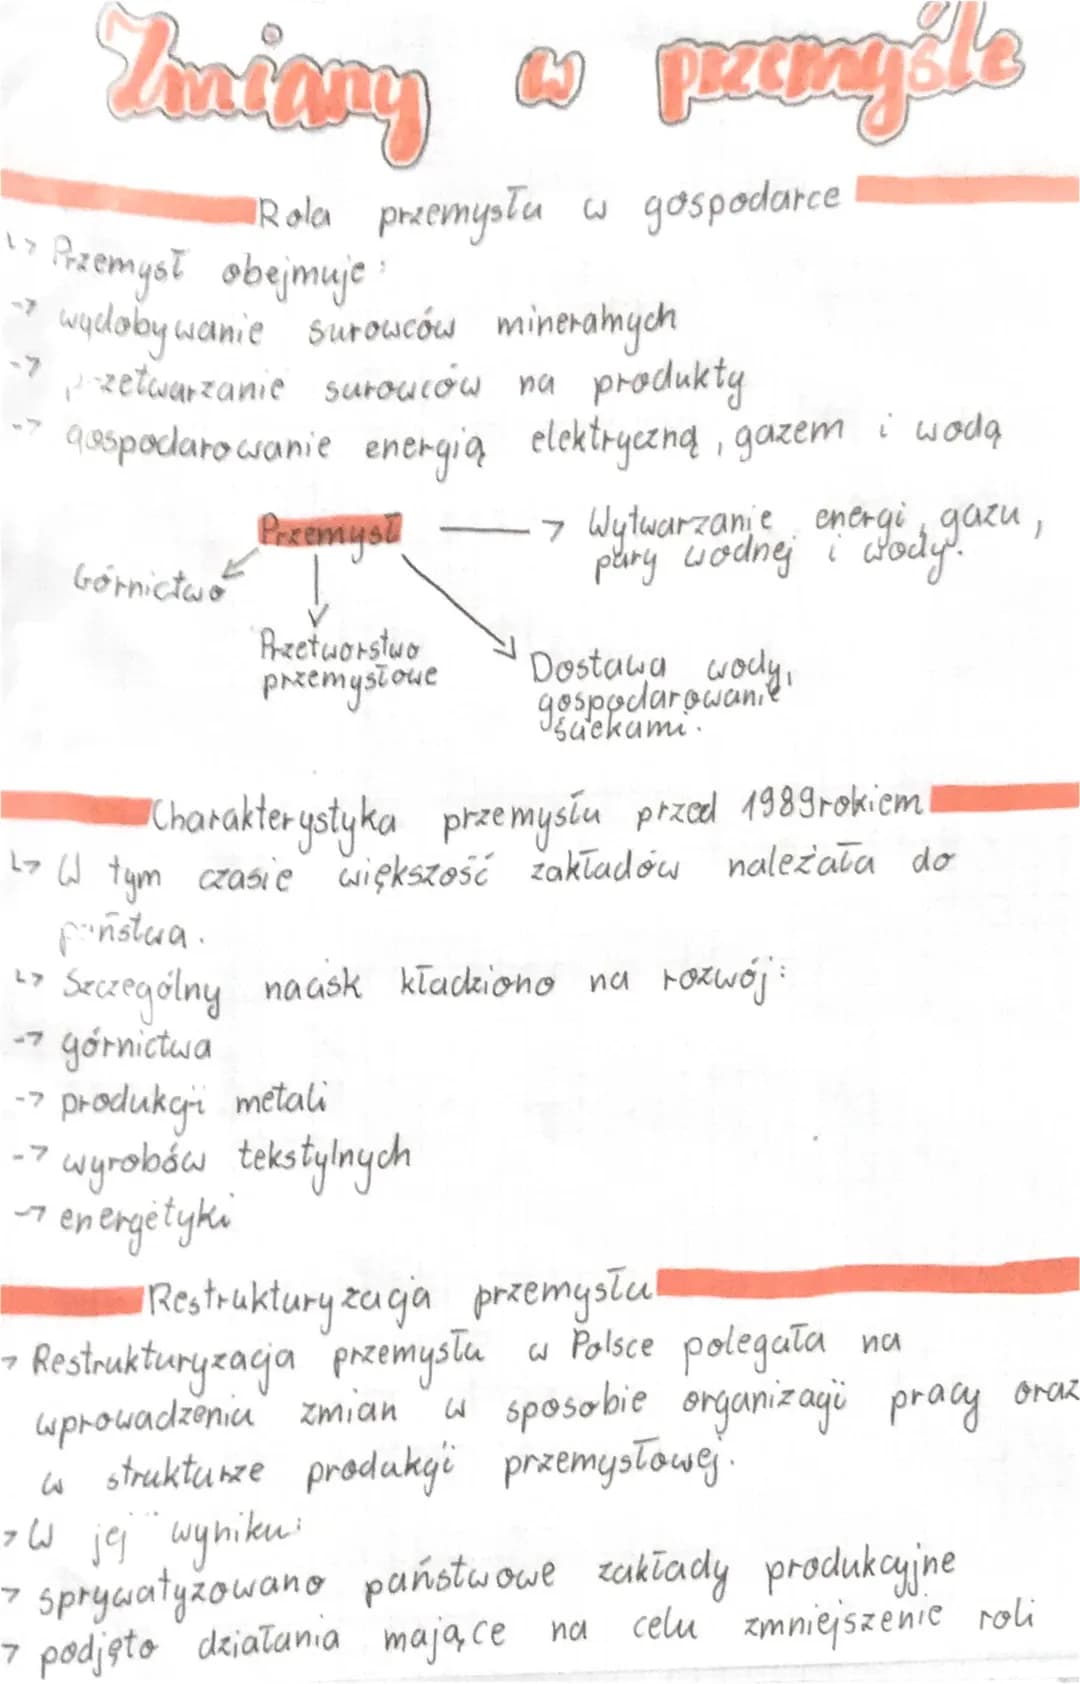 Zmiany w przemyśle
Rola przemysłu w gospodarce
↳ Przemysł obejmuje:
-> wydobywanie surowców mineralnych
-> przetwarzanie surowców na produkty
-> gospodarowanie energią elektryczną, gazem i wodą
Przemysł -> Wytwarzanie energi, gazu,
pary wodnej i wody.
Górnictwo
Przetwórstwo
przemysłowe
Dostawa wody,
gospodarowanie
ściekami.
Charakterystyka przemysłu przed 1989rokiem
↳ W tym czasie większość zakładów należała do
państwa.
↳ Szczególny nacisk kładziono na rozwój:
-> górnictwa
-> produkcji metali
-> wyrobów tekstylnych
-> energetyki
Restrukturyzacja przemysłu
> Restrukturyzacja przemysłu w Polsce polegała na
wprowadzeniu zmian w sposobie organizacji pracy oraz
w strukturze produkcji przemysłowej.
> W jej wyniku:
> sprywatyzowano państwowe zakłady produkcyjne
> podjęto działania mające na celu zmniejszenie roli